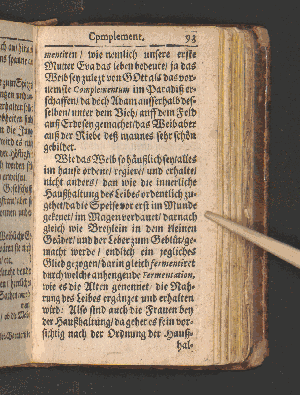 Complement. 93
mentiren / wie nemlich unsere erste
Mutter Eva das leben bedeute / ja das
Weib sey zuletzt von GOtt als das vor-
nemste Complementum im Paradiß er-
schaffen / da doch Adam ausserhalb des-
selben / unter dem Vieh / auff dem Feld
auß Erd sey gemachet / das Weib aber
auß der Riebe deß mannes sehr schön
gebildet.
Wie das Weib so häußlich sey / alles
im hause ordene / regiere / und erhalte /
nicht anders / dan wie die innerliche
Haußhaltung des Leibes ordentlich zu-
gehet / da die Speise vor erst im Munde
gekeuet / im Magen verdauet / darnach
gleich wie Breylein in dem kleinen
Geäder / und der Leber zum Geblüt / ge-
macht werde / endlich ein jegliches
Glied gezogen / darin gleich fermentiret
durch welche anhengende Fermentation,
wie es die Alten genennet / die Nah-
rung des Leibes ergänzet und erhalten
wird: Also sind auch die Frauen bey
der Haußhaltung / da gehet es fein vor-
sichtig nach der Ordnung der Hauß-
hal-